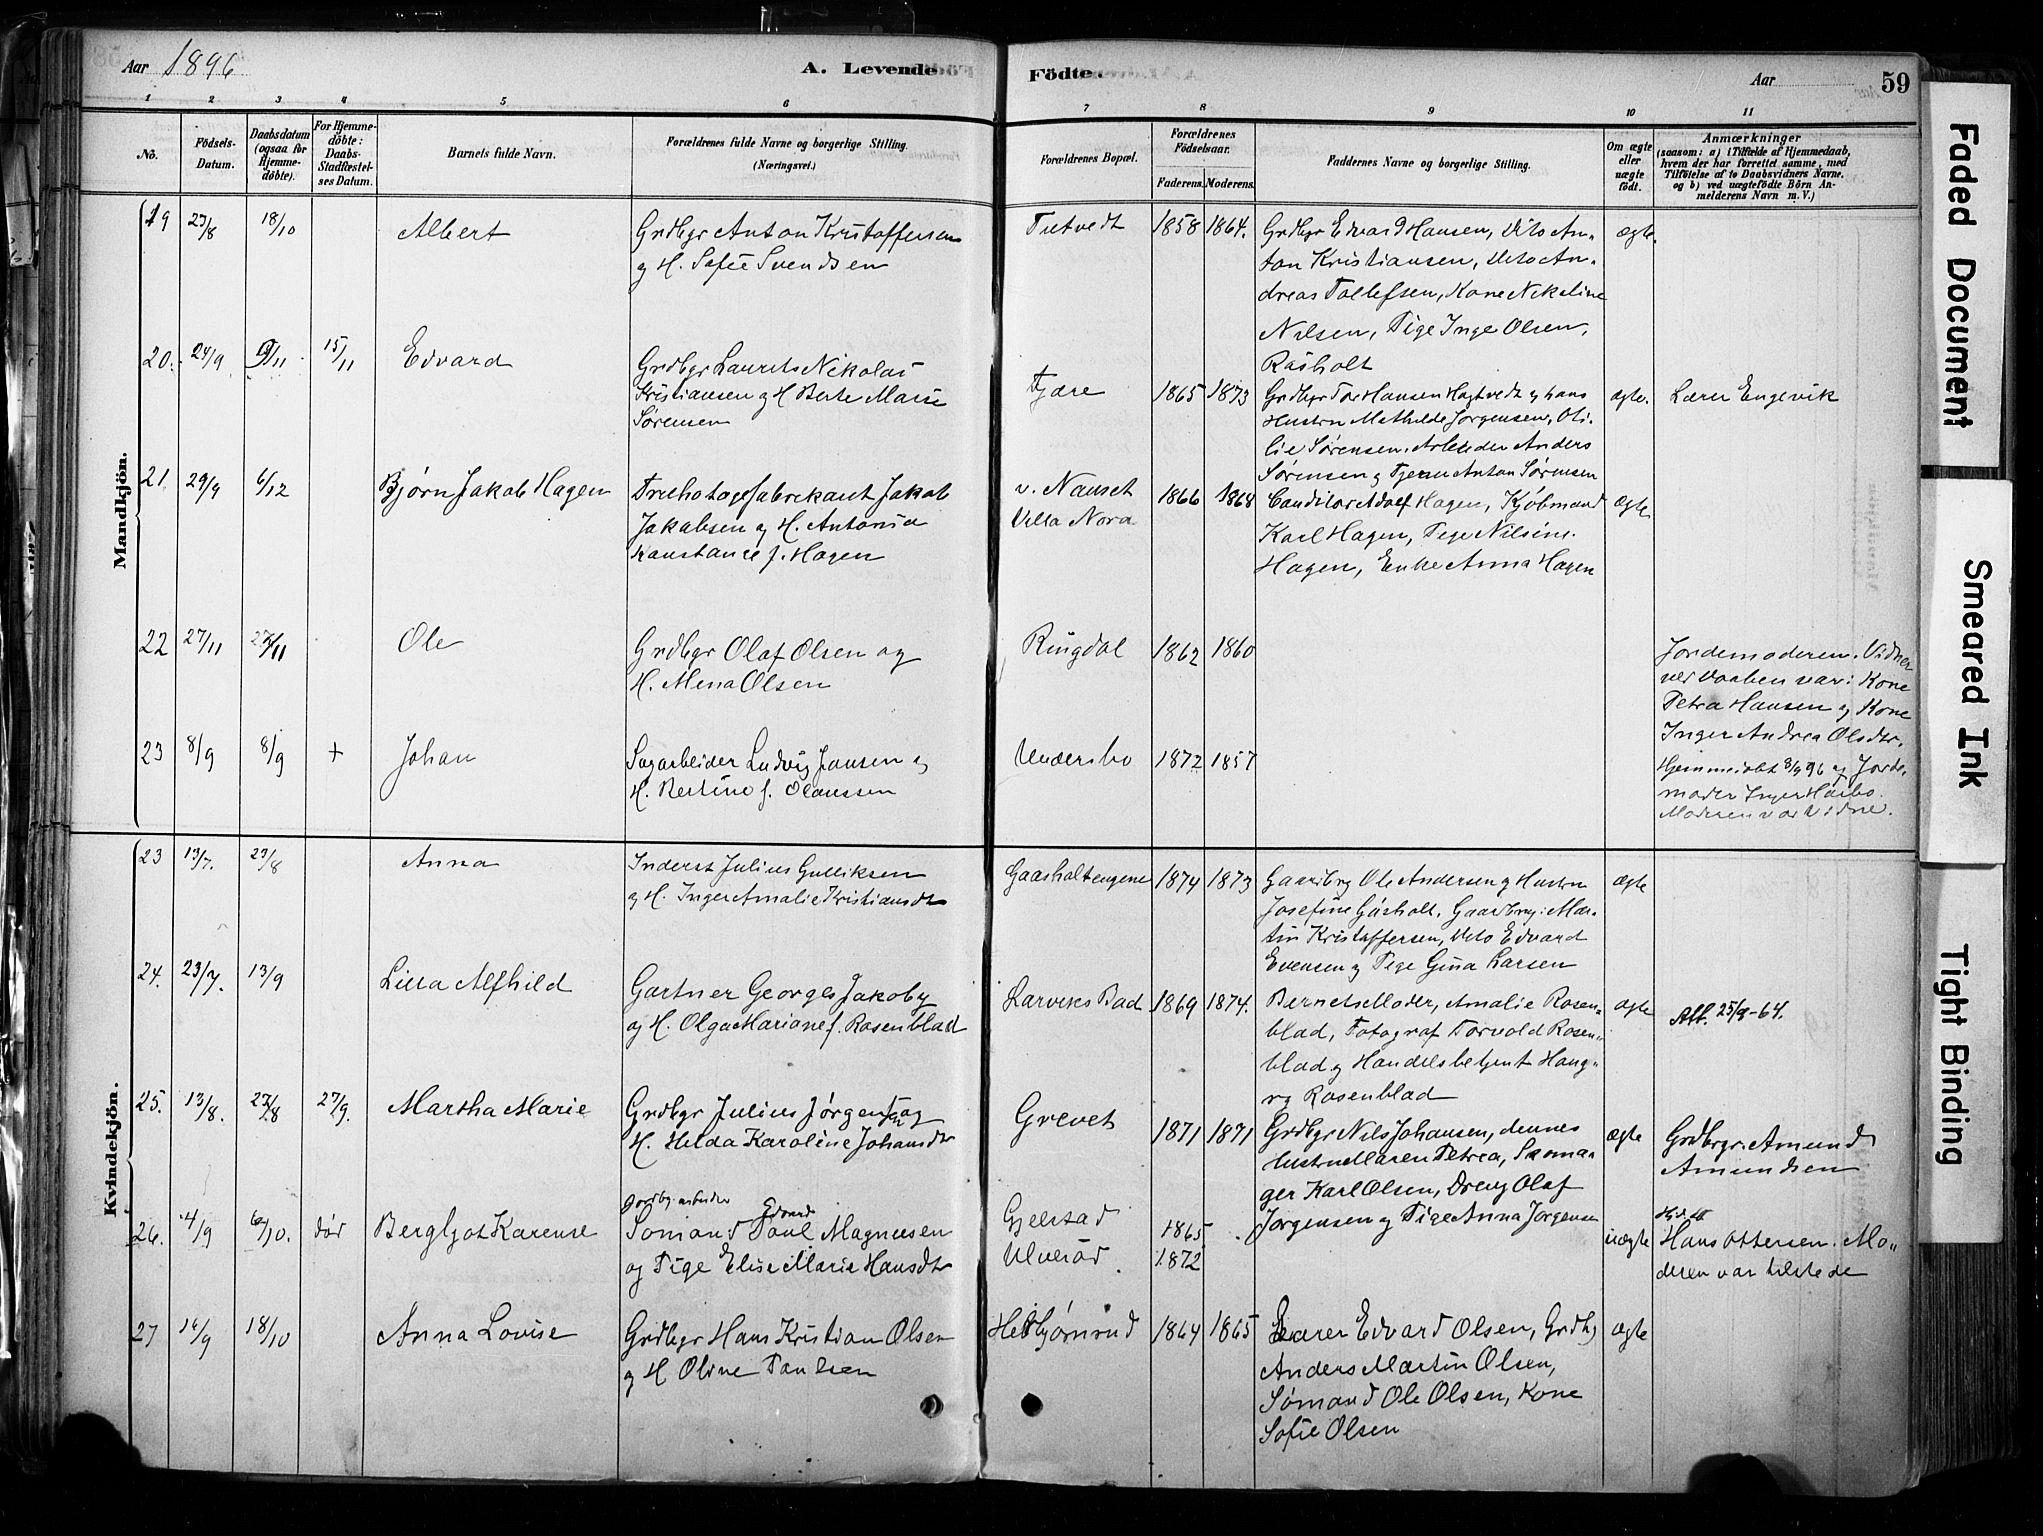 Aar 1896
A. Levende Födte.
Aar
59
1 2 3 4 5 6 7 8 9 10 11
No.
Födsels-
Datum.
Daabsdatum
(ogsaa for
Hjemme-
döbte).
For Hjemme-
döbte:
Daabs-
Stadfæstel-
ses Datum.
Barnets fulde Navn.
Forældrenes fulde Navne og borgerlige Stilling.
(Næringsvei.)
Forældrenes Bopæl.
Forældrenes
Födselsaar.
Faderens. Moderens.
Faddernes Navne og borgerlige Stilling.
Om ægte
eller
uægte
födt.
Anmærkninger
(saasom: a) i Tilfælde af Hjemmedaab,
hvem der har forrettet samme, med
Tilföielse af to Daabsvidners Navne,
og b) ved uægtefödte Börn An-
melderens Navn m.V.)
Mandkjön.
19 23/8 18/10 Albert
Grdbgr Anton Kristoffersen
og H. Sofie Svendsen
Tutvedt 1858 1864.
Grdbgr Edvard Hansen, dito An-
ton Kristiansen, dito An-
dreas Tollefsen, Kone Nikoline
Nilsen, Pige Inge Olsen,
Råsholt
ægte.
20. 24/9 9/11 15/11 Edvard
Grdbgr Laurits Nikolai
Kristiansen og H Berte Marie
Sørensen
Fjære 1865 1873
Grdbgr Tor Hansen Hagtvedt og hans
Hustru Mathilde Jørgensen, Oti-
lie Sørensen, Arbeider Anders
Sørensen og Tjener Anton Sørensen
ægte.
Lærer Engevik
21. 29/9 6/12 Bjørn Jakob Hagen
Jakob
Jakobsen og H. Antonia
Konstance f. Hagen
v. Nanset
Villa Nora
1866 1868
Conditor Adolf Hagen, Kjøbmand
Karl Hagen, Pige
Hagen, Enke Anna Hagen
ægte
22 27/11 27/11 Ole
Grdbgr Olaf Olsen og
H. Mena Olsen
Ringdal 1862 1860
Jordemoderen. Vidner
ved Daaben var: Kone
Petra Hansen og Kone
Inger Andrea Olsdtr.
23 8/9 8/9 + Johan
Sagarbeider Ludvig Jansen og
H. Bertine f. Olaussen
Undersbo 1872 1857
Hjemmedøbt 8/9 96 af Jorde-
moder Inger
Moderen var Vidne.
Kvindekjön.
23 13/7. 23/8 Anna
Inderst Julius Gulliksen
og H. Inger Amalie Kristiansdtr
Gaasholtengene 1874 1873
Gaardbrg Ole Andersen og Hustru
Josefine Gåsholt, Gaardbrg: Mar-
tin Kristoffersen, dito Edvard
Evensen og Pige Gina Larsen
ægte
24. 23/7. 13/9 Lilla Alfhild
Gartner Georges Jakoby
og H. Olga Mariane f. Rosenblad
Larviks Bad 1869 1874.
Barnets Moder, Amalie Rosen-
blad, Fotograf Torvald Rosen-
blad og Handelsbetjent Haug-
Rosenblad
ægte
Att. 25/9-64.
25. 13/8. 23/8 27/9. Martha Marie
Grdbgr Julius Jørgensen og
H. Helda Karoline Johansdtr
Grevet 1871 1871
Grdbgr Nils Johansen, dennes
Hustru Maren Petrea, Skoma-
ger Karl Olsen, Dreng Olaf
Jørgensen og Pige Anna Jørgensen
ægte
Grdbrgr. Amund
Amundsen
26. 4/9 6/10. død Bergljot Karense
Jordbg. arbeider
Sømand Paul Edvard Magnussen
og Pige Elise Marie Hansdtr
Gjelstad
Ulverød
1865
1872
uægte
Hans Ottersen. Mo-
deren var tilstede
27 14/9 18/10 Anna Lovise
Grdbgr Hans Kristian Olsen
og H Oline Paulsen
Hesbjørnrud 1864 1865
Lærer Edvard Olsen, Grdbg
Anders Martin Olsen,
Sømand Ole Olsen, Kone
Sofie Olsen
ægte
Faded Document
Smeared Ink
Tight Binding